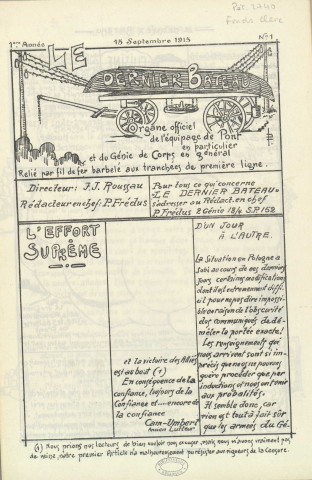 Pér. 2440
Fonds Guerre
1ère Année
15 Septembre 1915
N° 1
LE
DERNIER BATEAU
Organe officiel
de l'équipage de Pont
en particulier
et du Génie de Corps en général
Relié par fil de fer barbelé aux tranchées de première ligne.
Directeur: J.J. Rousgau
Rédacteur en chef: P. Frédus
Pour tout ce qui concerne
LE DERNIER BATEAU
s'adresser au Rédact. en chef
P. Frédus 2 Génie 18/2 S.P. 152
L'EFFORT
SUPRÊME
et la victoire des Alliés
est au bout (1)
En conséquence de la
confiance, toujours de la
Confiance et.....encore de
la confiance
Cam-Umbert
Ancien Lutteur
D'UN JOUR
À L'AUTRE.
La Situation en Pologne a
subi au cours de ces derniers
jours, certaines modifications
dont il est extrêmement diffi-
cile pour ne pas dire impossi-
ble en raison de l'obscurité
des communiqués de dé-
mêler la portée exacte!
Les renseignements qui
nous arrivent sont si im-
précis que nous ne pouvons
guère procéder que par
inductions et nous en tenir
aux probalités.
Il semble donc, car
rien est tout à fait sûr
que les armées du Gé-
(1) Nous prions nos lecteurs de bien vouloir nous excuser, mais nous n'avons vraiment pas
de veine, notre premier Article n'a malheureusement pu résister aux rigueurs de la Censure.